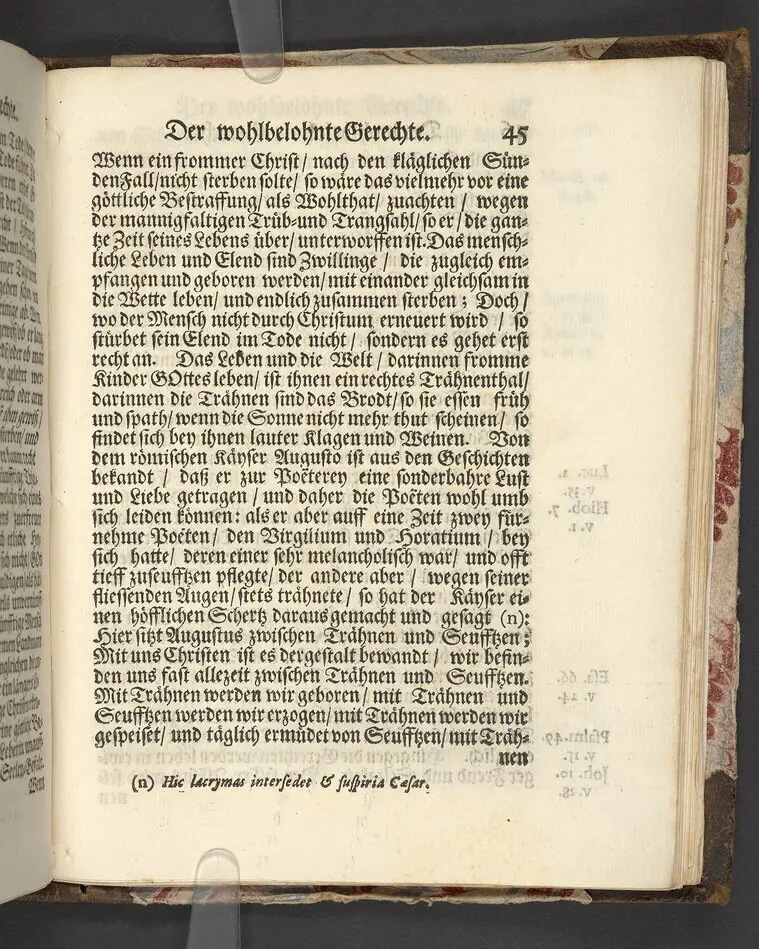 Der wohlbelohnte Gerechte. 45
Wenn ein frommer Christ/ nach den kläglichen Sün-
den Fall/ nicht sterben solte/ so wäre das vielmehr vor eine
göttliche Bestraffung/ als Wohlthat/ zuachten/ wegen
der mannigfaltigen Trüb- und Trangsahl/ so er/ die gan-
tze Zeit seines Lebens über/ unterworffen ist. Das mensch-
liche Leben und Elend sind Zwillinge/ die zugleich em-
pfangen und geboren werden/ mit einander gleichsam in
die Wette leben/ und endlich zusammen sterben; Doch/
wo der Mensch nicht durch Christum erneuert wird/ so
stürbet sein Elend im Tode nicht/ sondern es gehet erst
recht an. Das Leben und die Welt/ darinnen fromme
Kinder GOttes leben/ ist ihnen ein rechtes Trähnenthal/
darinnen die Trähnen sind das Brodt/ so sie essen früh
und spath/ wenn die Sonne nicht mehr thut scheinen/ so
findet sich bey ihnen lauter Klagen und Weinen. Von
dem römischen Käyser Augusto ist aus den Geschichten
bekandt/ daß er zur Poëterey eine sonderbahre Lust
und Liebe getragen/ und daher die Poëten wohl umb
sich leiden können: als er aber auff eine Zeit zwey für-
nehme Poëten/ den Virgilium und Horatium/ bey
sich hatte/ deren einer sehr melancholisch war/ und offt
tieff zuseufftzen pflegte/ der andere aber/ wegen seiner
fliessenden Augen/ stets trähnete/ so hat der Käyser ei-
nen höfflichen Schertz daraus gemacht und gesagt (n):
Hier sitzt Augustus zwischen Trähnen und Seufftzen;
Mit uns Christen ist es dergestalt bewandt/ wir befin-
den uns fast allezeit zwischen Trähnen und Seufftzen.
Mit Trähnen werden wir geboren/ mit Trähnen und
Seufftzen werden wir erzogen/ mit Trähnen werden wir
gespeiset/ und täglich ermüdet von Seufftzen/ mit Träh-
nen
(n) Hic lacrymas intersedet & suspiria Cæsar.